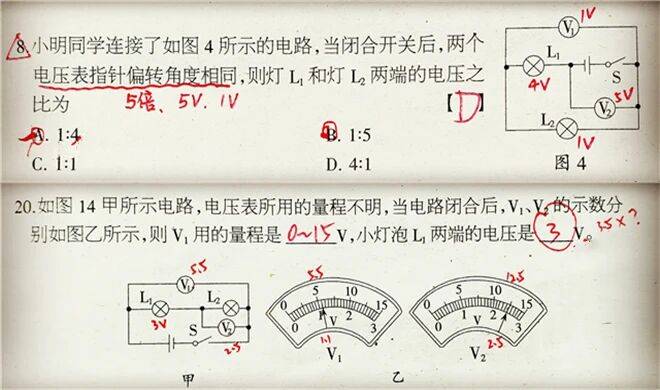 8.小明同学连接了如图4所示的电路,当闭合开关后,两个
电压表指针偏转角度相同,则灯L₁和灯L₂两端的电压之
比为 5倍、5V. 1V 【D】
A. 1:4 B. 1:5
C. 1:1 D. 4:1
1V
V₁
L₁
S
4V
5V
V₂
L₂
1V
图4
20.如图14甲所示电路,电压表所用的量程不明,当电路闭合后,V₁、V₂的示数分
别如图乙所示,则V₁用的量程是 0~15 V,小灯泡L₁两端的电压是 3 V。 3.5×?
5.5
V₁
L₁ L₂
3V
V₂
S
2.5
甲
5.5
0 5 10 15
0 1 2 3
V
1.1
V₁
12.5
0 5 10 15
0 1 2 3
V
2.5
V₂
乙